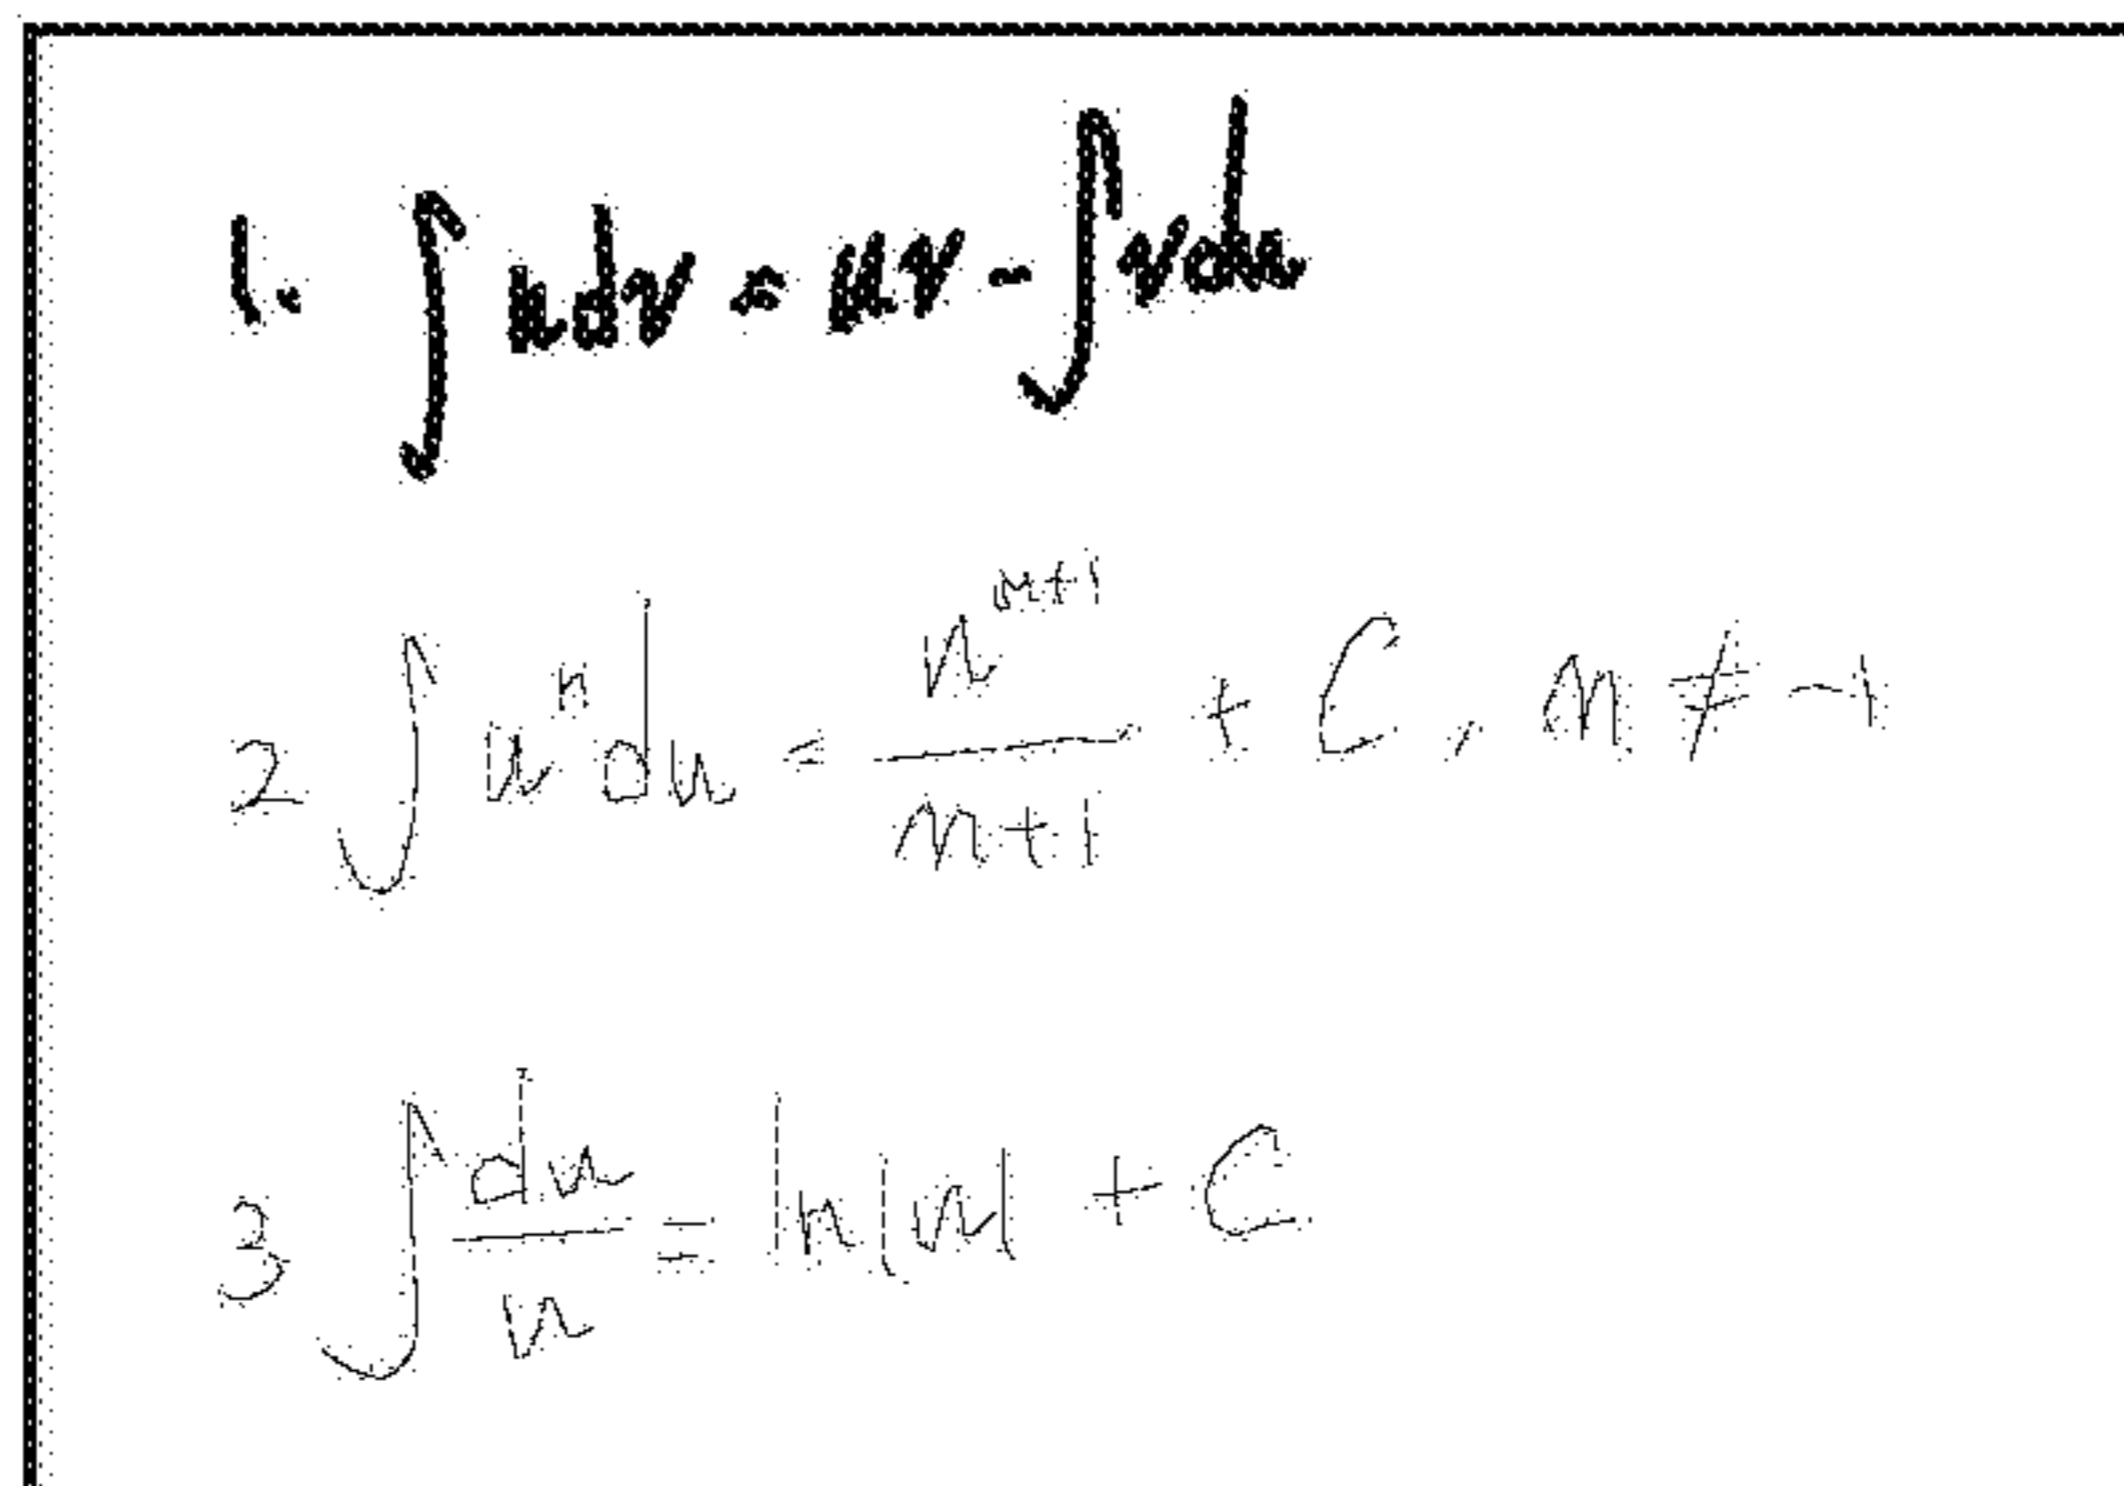 1. ∫ u dv = uv - ∫ v du
2 ∫ uⁿ du = uⁿ⁺¹ / n+1 + C, n ≠ -1
3 ∫ du / u = ln|u| + C